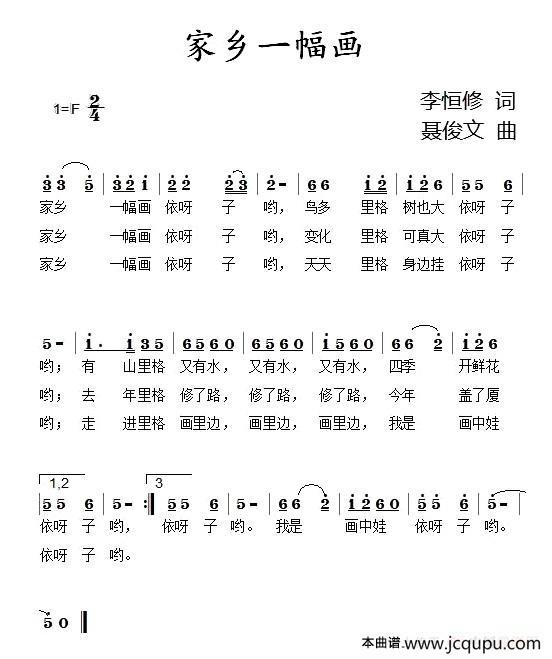 家乡一幅画
1=F 2/4
李恒修 词
聂俊文 曲
3 3 5 | 3 2 1 | 2 2 2 3 | 2 - | 6 6 1 2 | 1 2 6 | 5 5 6 |
家乡 一幅画 依呀 子 哟， 鸟多 里格 树也大 依呀 子
家乡 一幅画 依呀 子 哟， 变化 里格 可真大 依呀 子
家乡 一幅画 依呀 子 哟， 天天 里格 身边挂 依呀 子
5 - | 1 . 1 1 3 5 | 6 5 6 0 | 6 5 6 0 | 6 5 6 0 | 6 6 2 | 1 2 6 |
哟； 有 山里格 又有水， 又有水， 又有水， 四季 开鲜花
哟； 去 年里格 修了路， 修了路， 修了路， 今年 盖了厦
哟； 走 进里格 画里边， 画里边， 画里边， 我是 画中娃
1,2 3
5 5 6 | 5 - :‖ 5 5 6 | 5 - | 6 6 2 | 1 2 6 0 | 5 5 6 | 5 - |
依呀 子 哟， 依呀 子 哟。 我是 画中娃 依呀 子 哟。
依呀 子 哟。
5 0 ‖
本曲谱 www.jcqupu.com